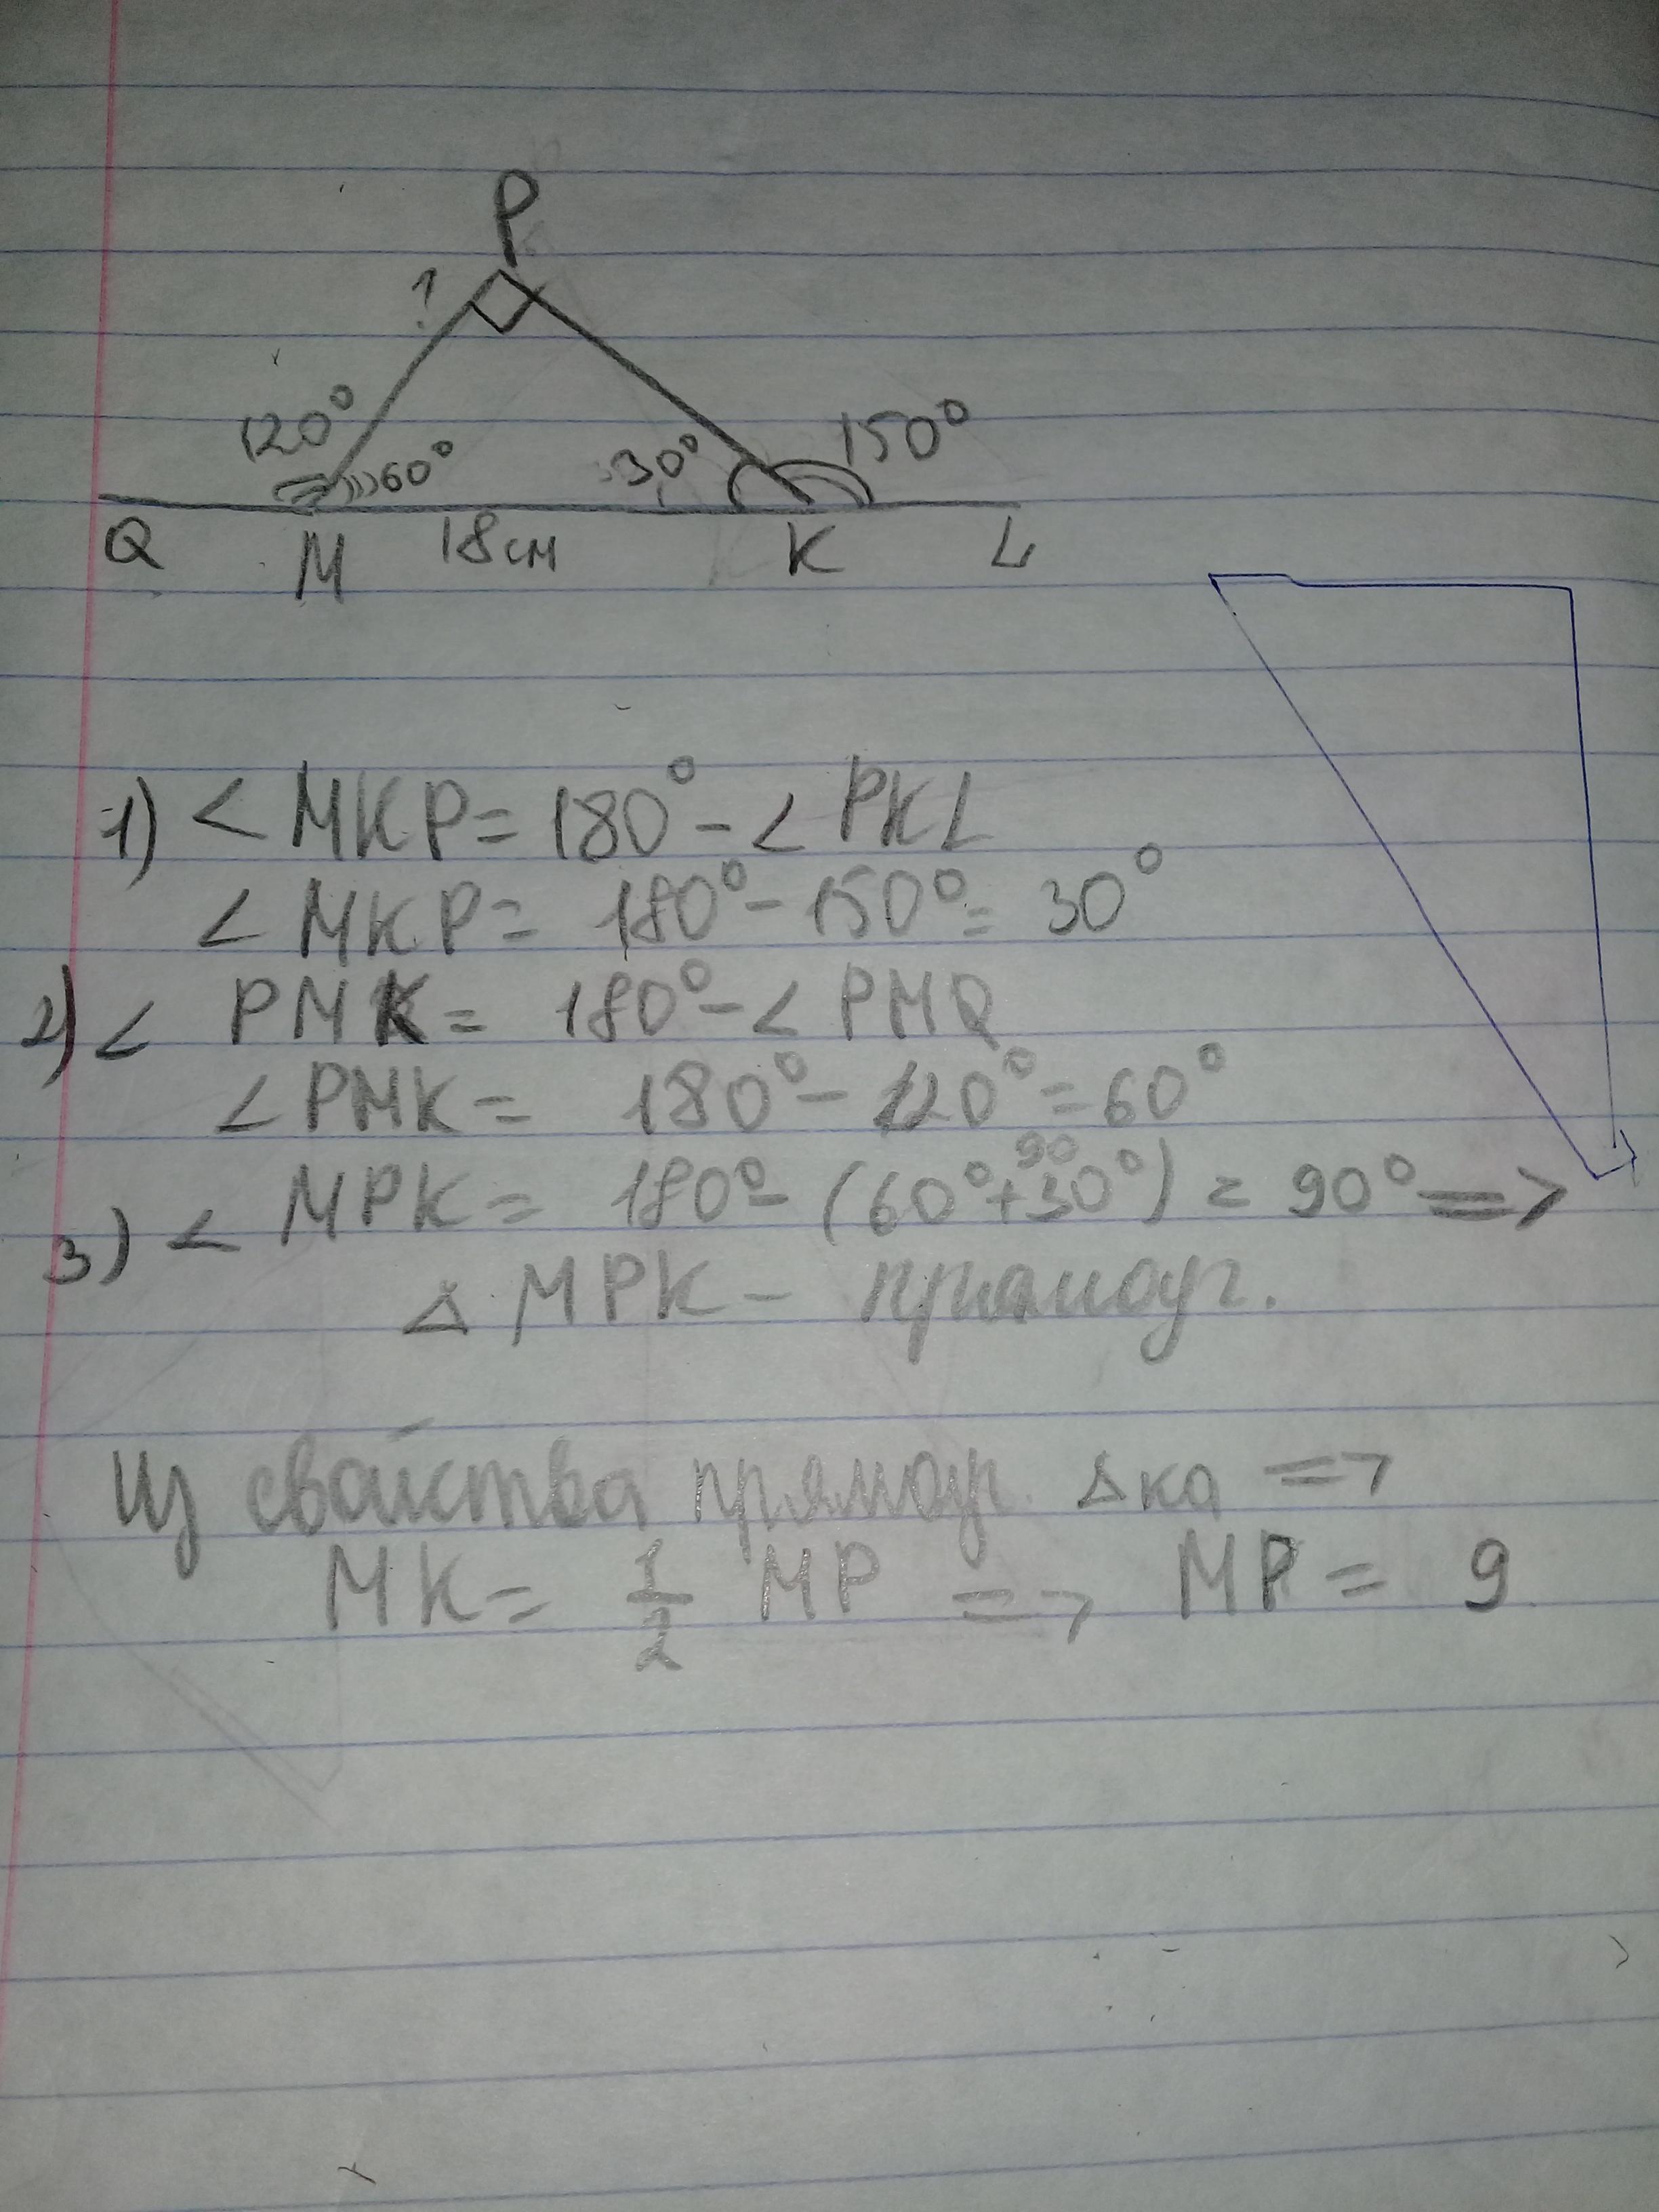 P
?
120° 60° 30° 150°
Q M 18см K L
1) < MKP = 180° - < PKL
< MKP = 180° - 150° = 30°
2) < PMK = 180° - < PMQ
< PMK = 180° - 120° = 60°
90
3) < MPK = 180° - (60° + 30°) = 90° =>
Δ MPK - прямоуг.
Из свойства прямоуг. Δка =>
MK = 1/2 MP => MP = 9